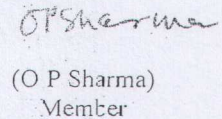 OPSharma
(O P Sharma)
Member